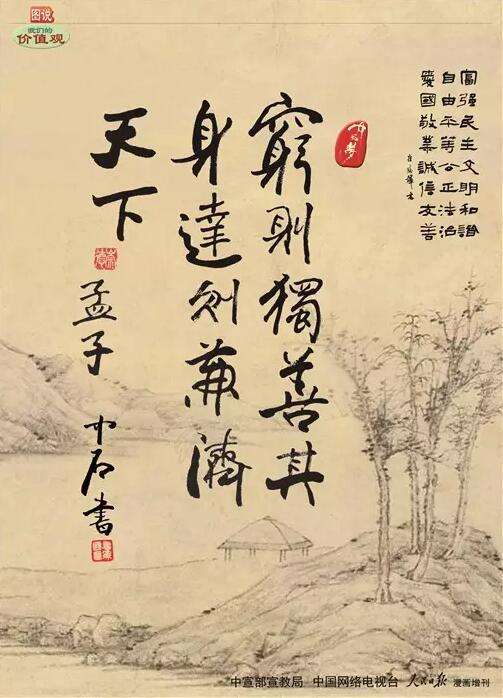 图说
我们的
价值观
富强民主文明和谐
自由平等公正法治
爱國敬業誠信友善
窮則獨善其
身達則兼濟
天下
孟子
中石書
中宣部宣教局 中国网络电视台 人民日报 漫画增刊